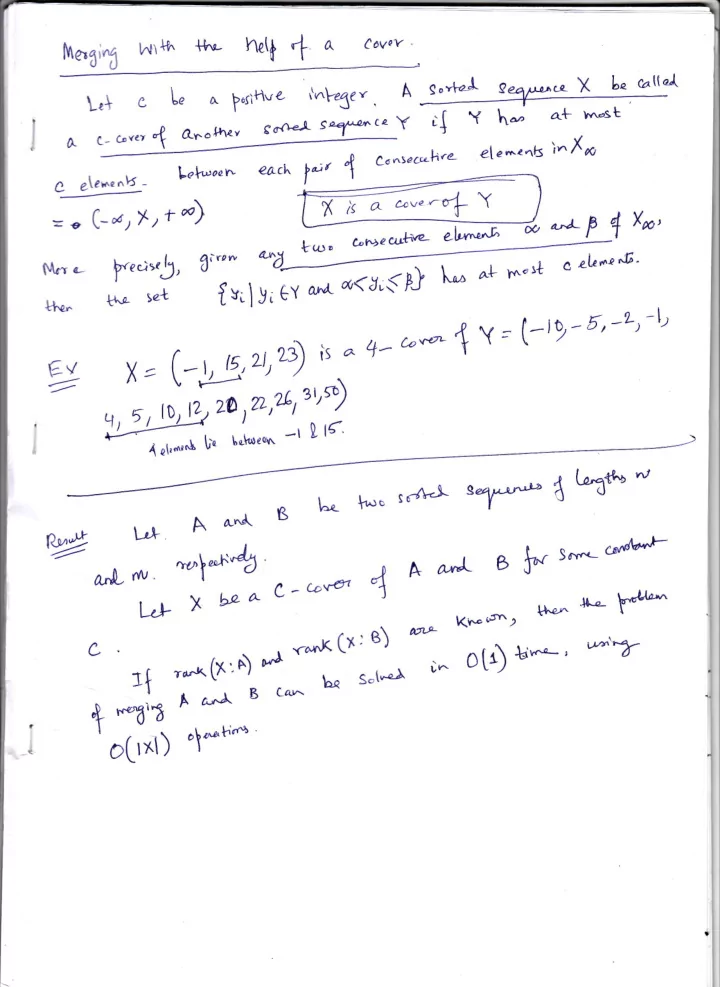 Merging with the help of a cover.
Let c be a positive integer. A sorted sequence X be called
a c-cover of another sorted sequence Y if Y has at most
c elements between each pair of consecutive elements in X∞
= (-∞, X, +∞)
X is a cover of Y
More precisely, given any two consecutive elements α and β of X∞,
then the set {yi | yi ∈ Y and α < yi ≤ β} has at most c elements.
Ex X = (-1, 15, 21, 23) is a 4-cover of Y = (-10, -5, -2, -1,
4, 5, 10, 12, 20, 22, 26, 31, 50)
4 elements lie between -1 & 15.
Result Let A and B be two sorted sequences of lengths n
and m. respectively.
Let X be a C-cover of A and B for some constant
C.
If rank (X:A) and rank (X:B) are known, then the problem
of merging A and B can be solved in O(1) time, using
O(|X|) operations.